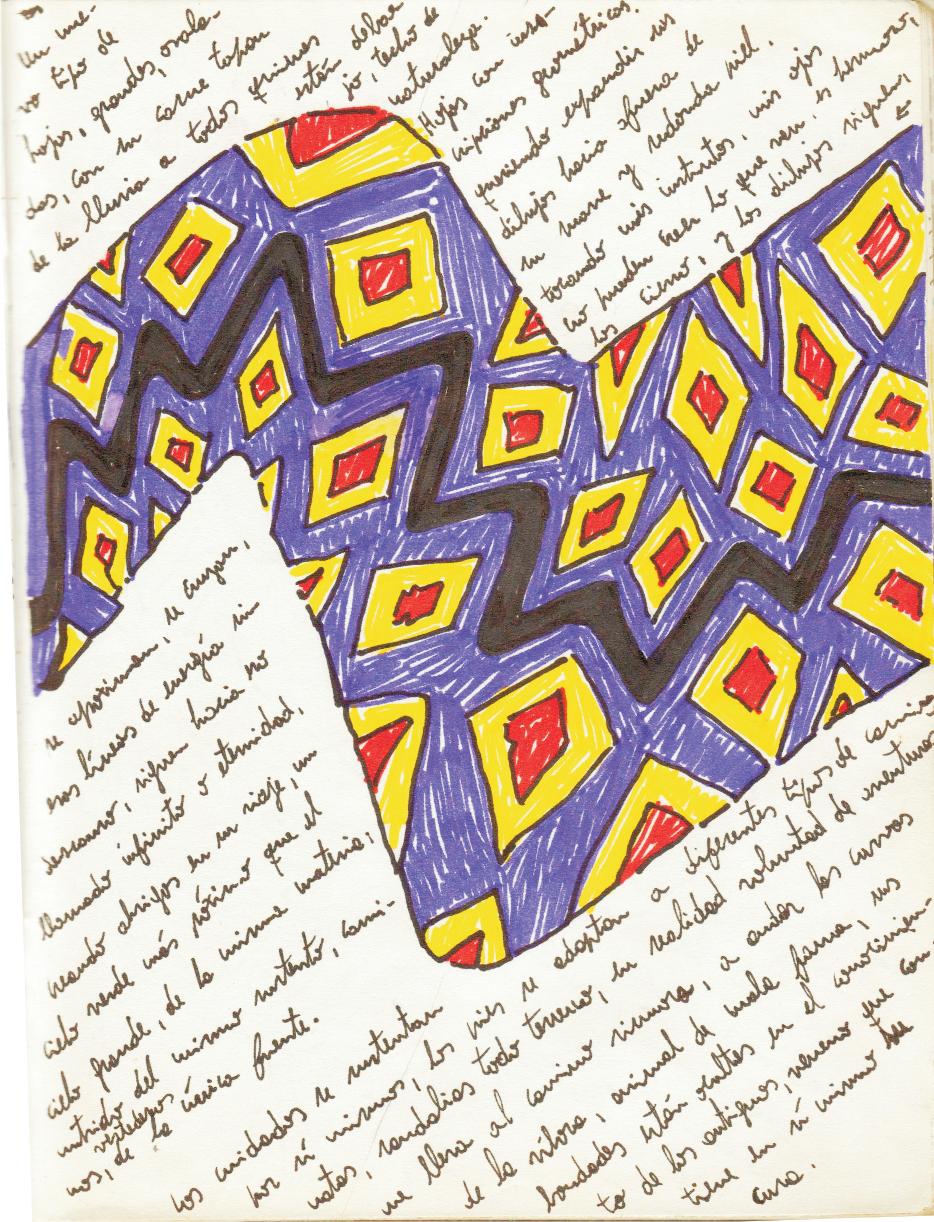 un nue-
vo tipo de
hojas, grandes, ovala-
das, con su carne tapan
de la lluvia a todos quienes
están debar
jo, techo de
naturaleza.
Hojas con inscri-
ripciones geométricas.
queriendo expandir sus
dibujos hacia fuera de
su suave y redonda piel.
tocando mis instintos, mis ojos
no pueden creer lo que ven, es hermoso,
los cierro, y los dibujos siguen,
se aproximan, se cruzan,
esas líneas de energía sin
descanso, siguen hacia no
llamado infinito o eternidad,
creando abrigos en su viaje, un
cielo verde más próximo que el
cielo grande, de la misma materia,
nutrido del mismo sustento, cami-
nos, de la única fuente.
vertidos
Los cuidados se sustentan
por si mismos, los pies se adaptan a diferentes tipos de camino
natas, sandalias todo terreno, su realidad voluntad de aventuras
me lleva al camino sinuoso, a andar las curvas
de la víbora, animal de mala fama, sus
bondades están ocultas en el conocimien-
to de los antiguos, veneno que con-
tiene en si mismo la
cura.